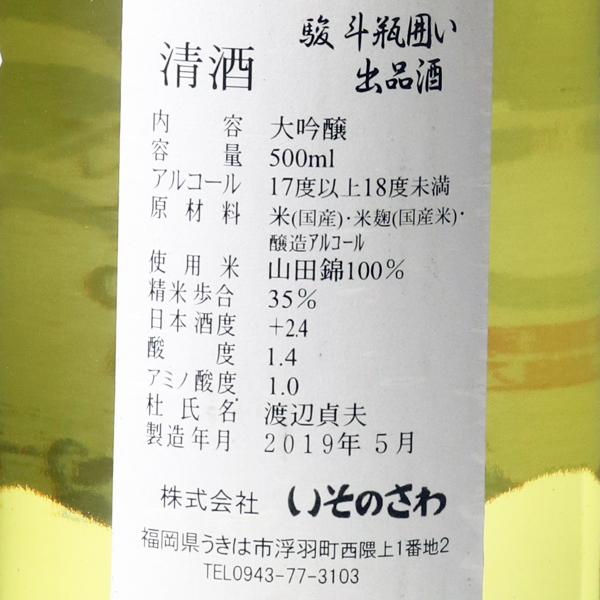 駿 斗瓶囲い
清酒 出品酒
内容 大吟醸
容量 500ml
アルコール 17度以上18度未満
原材料 米(国産)・米麹(国産米)・
醸造アルコール
使用米 山田錦100%
精米歩合 35%
日本酒度 +2.4
酸度 1.4
アミノ酸度 1.0
杜氏名 渡辺貞夫
製造年月 2019年5月
株式会社 いそのさわ
福岡県うきは市浮羽町西隈上1番地2
TEL0943-77-3103